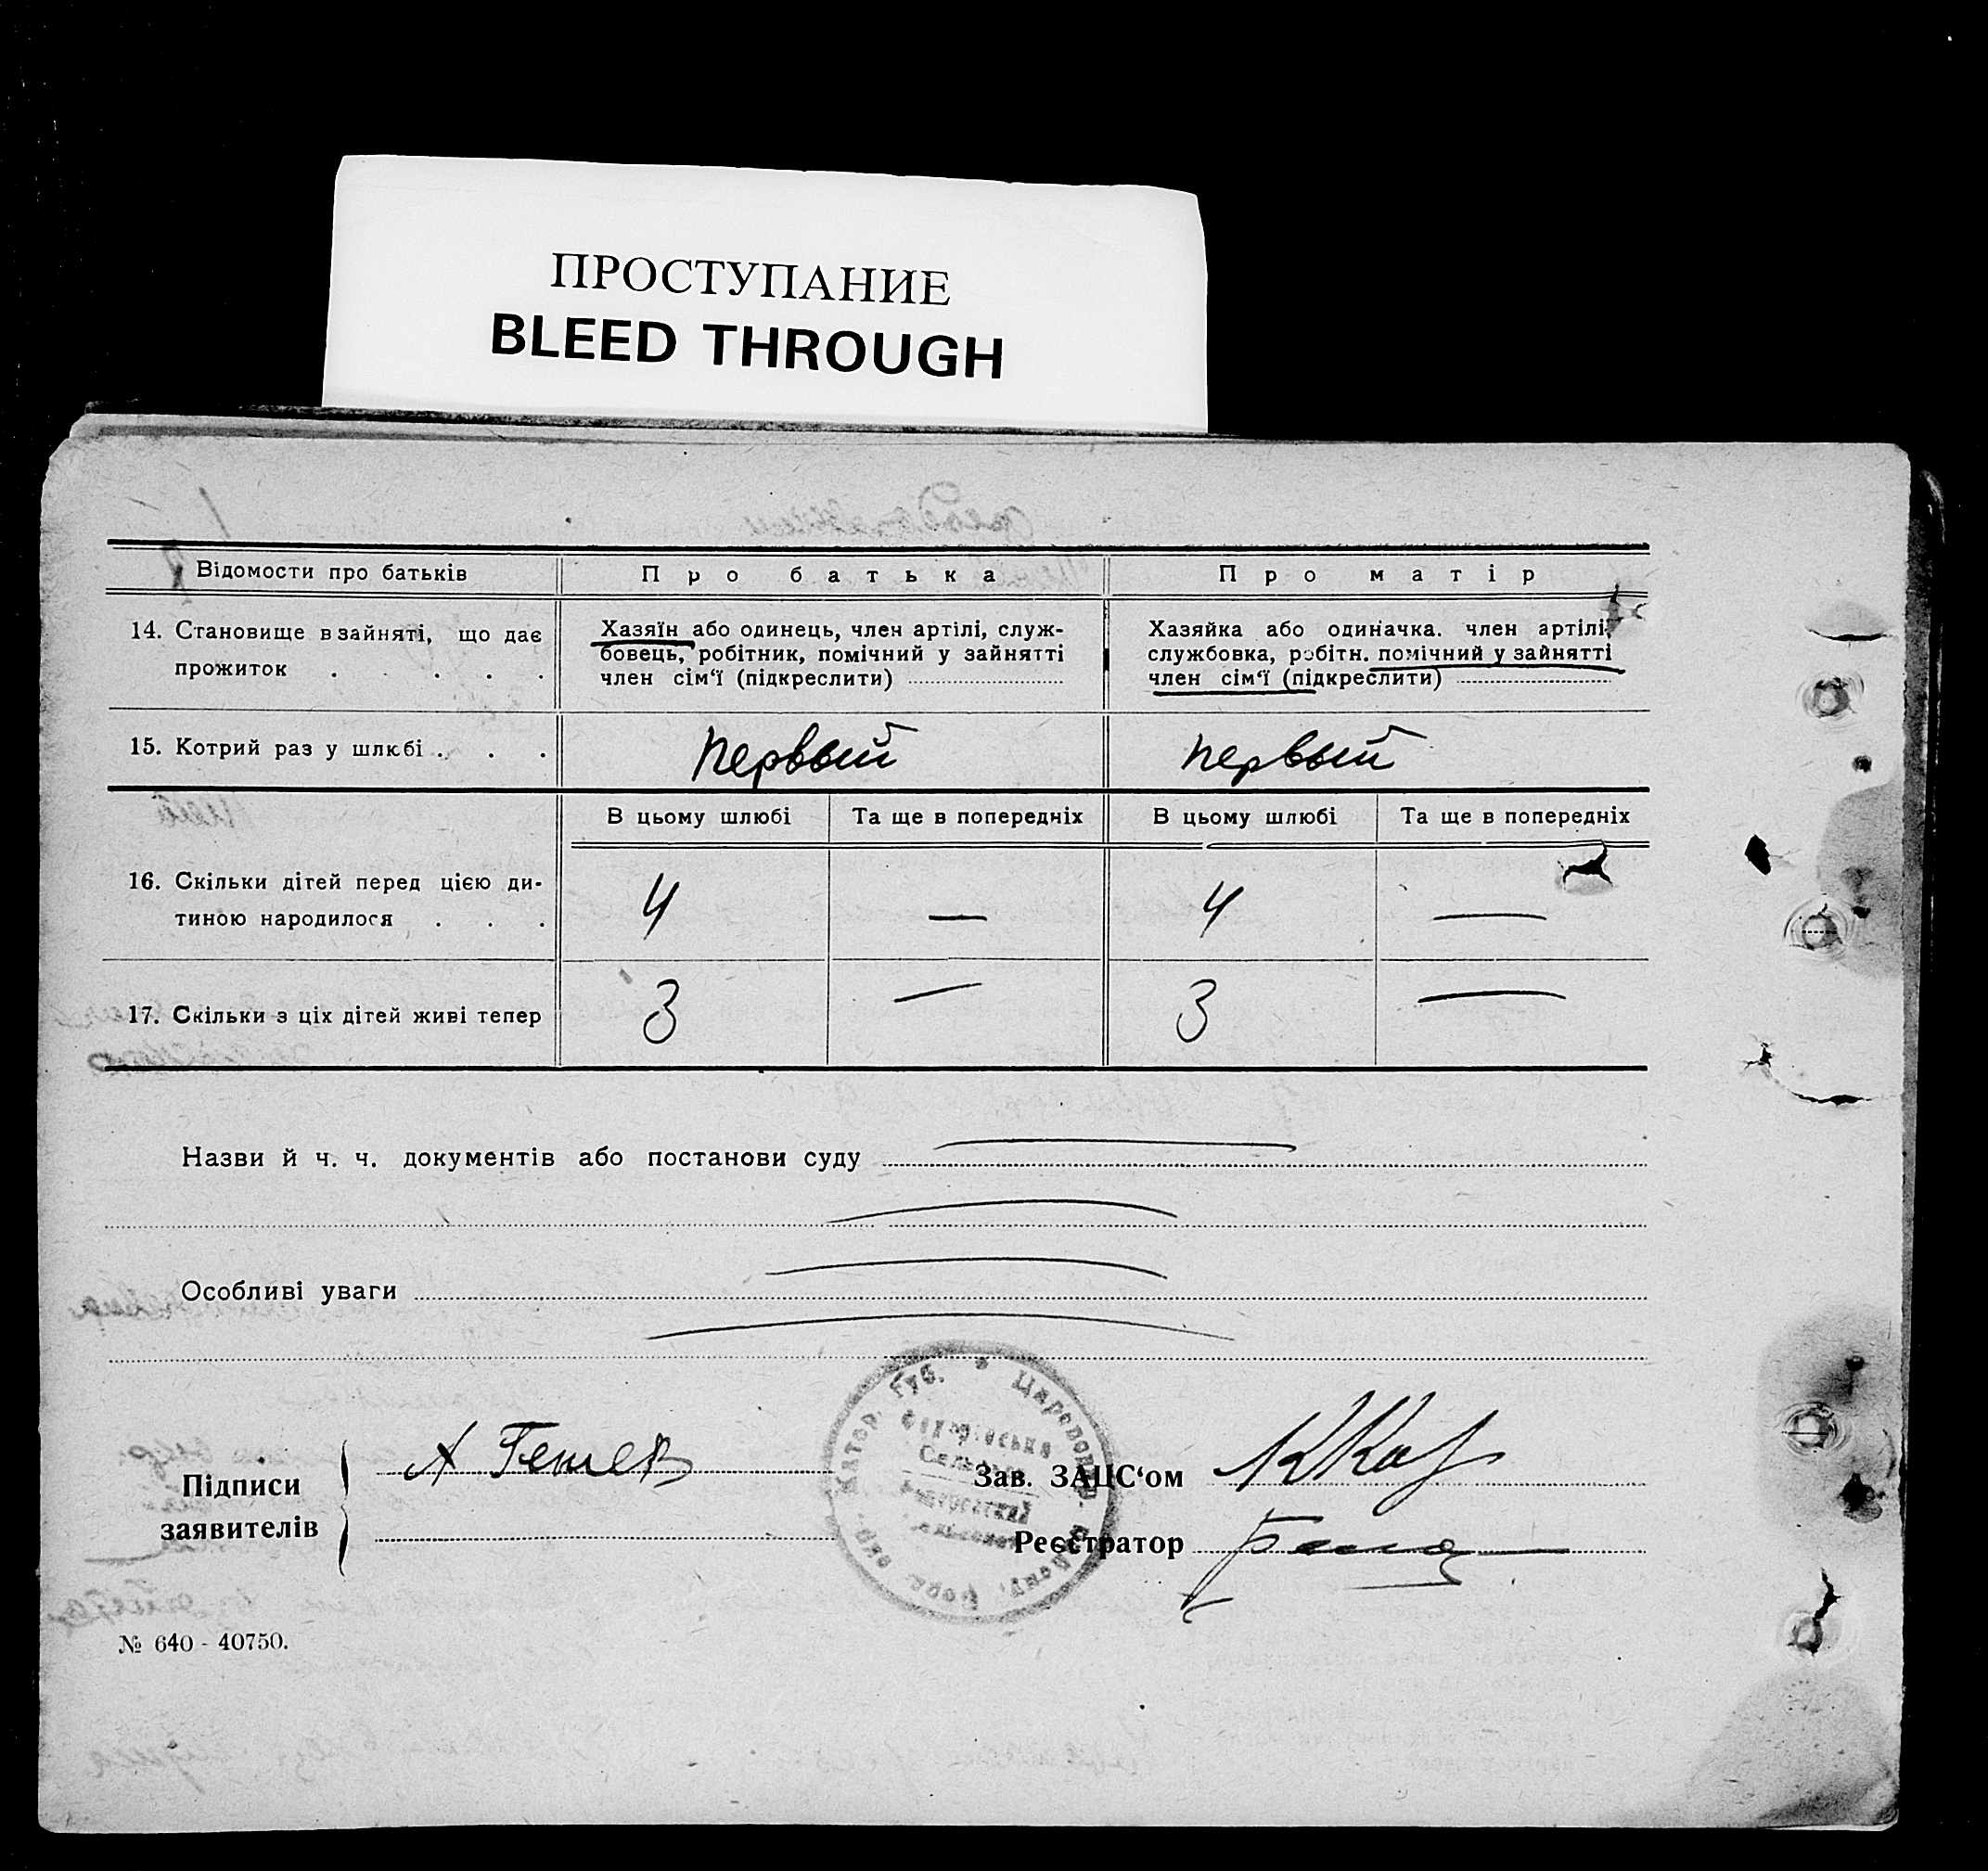 ПРОСТУПАНИЕ
BLEED THROUGH
Відомости про батьків
Про батька
Про матір
14. Становище в зайняті, що дає
прожиток . . . . .
Хазяїн або одинець, член артілі, служ-
бовець, робітник, помічний у зайнятті
член сім'ї (підкреслити)
Хазяйка або одиначка. член артілі,
службовка, робітн. помічний у зайнятті
член сім'ї (підкреслити)
15. Котрий раз у шлюбі . . .
Первый
Первый
В цьому шлюбі
Та ще в попередніх
В цьому шлюбі
Та ще в попередніх
16. Скільки дітей перед цією ди-
тиною народилося . . .
4 — 4 —
17. Скільки з ціх дітей живі тепер
3 — 3 —
Назви й ч. ч. документів або постанови суду
Особливі уваги
Підписи
заявителів
Зав. ЗАЦС'ом
Реєстратор
Катор. Губ. * Царевокр.
№ 640 - 40750.